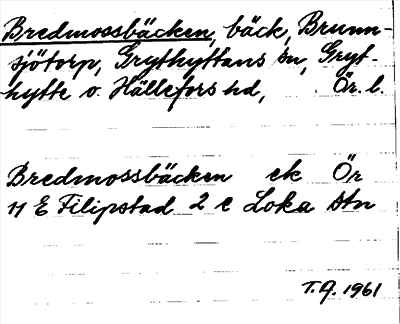 Bredmossbäcken, bäck, Brunn-
sjötorp, Grythyttans sn, Gryt-
hytte o. Hällefors hd, Ör. l.
Bredmossbäcken ek Ör
11 E Filipstad 2 c Loka stn
T.A. 1961